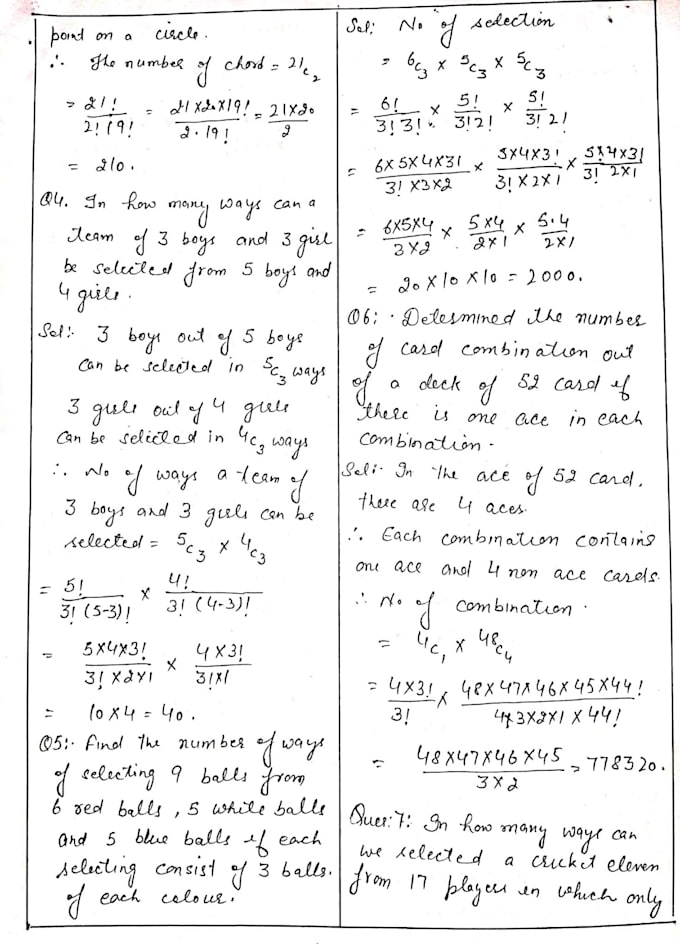 point on a circle.
∴ The number of chord = 21c₂
= 21!/2! 19! = 21×20×19!/2. 19! = 21×20/2
= 210.
Q4. In how many ways can a
team of 3 boys and 3 girl
be selected from 5 boys and
4 girls.
Sol:- 3 boys out of 5 boys
can be selected in ⁵c₃ ways
3 girls out of 4 girls
can be selected in ⁴c₃ ways
∴ No of ways a team of
3 boys and 3 girls can be
selected = ⁵c₃ × ⁴c₃
= 5!/3! (5-3)! × 4!/3! (4-3)!
= 5×4×3!/3! ×2×1 × 4×3!/3!×1
= 10×4 = 40.
Q5:- Find the number of ways
of selecting 9 balls from
6 red balls, 5 white balls
and 5 blue balls if each
selecting consist of 3 balls.
of each colour.
Sol: No of selection
= ⁶c₃ × ⁵c₃ × ⁵c₃
= 6!/3! 3! × 5!/3! 2! × 5!/3! 2!
= 6×5×4×3!/3! ×3×2 × 5×4×3!/3! ×2×1 × 5×4×3!/3! 2×1
= 6×5×4/3×2 × 5×4/2×1 × 5.4/2×1
= 20×10×10 = 2000.
Q6: Determined the number
of card combination out
of a deck of 52 card if
there is one ace in each
combination.
Sol:- In the ace of 52 card.
there are 4 aces.
∴ Each combination contains
one ace and 4 non ace cards.
∴ No of combination.
= ⁴c₁ × ⁴⁸c₄
= 4×3!/3! × 48×47×46×45×44!/4×3×2×1×44!
= 48×47×46×45/3×2 = 778320.
Ques:7: In how many ways can
we selected a cricket eleven
from 17 players in which only